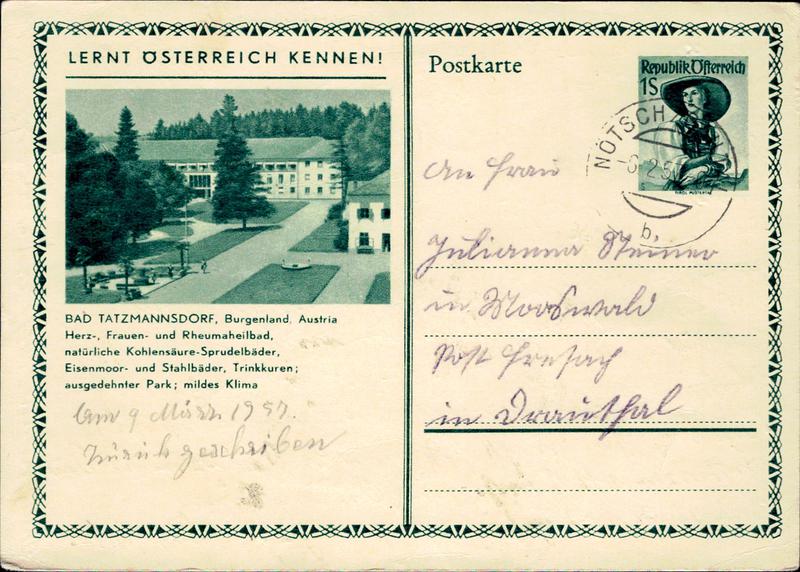 LERNT ÖSTERREICH KENNEN!
BAD TATZMANNSDORF, Burgenland, Austria
Herz-, Frauen- und Rheumaheilbad,
natürliche Kohlensäure-Sprudelbäder,
Eisenmoor- und Stahlbäder, Trinkkuren;
ausgedehnter Park; mildes Klima
Am 9 März
Zurück geschrieben
Postkarte
Republik Österreich
1S
NÖTSCH
b
An Frau
Julianna Steiner
in Mooswald
Post Fresach
in Drauthal